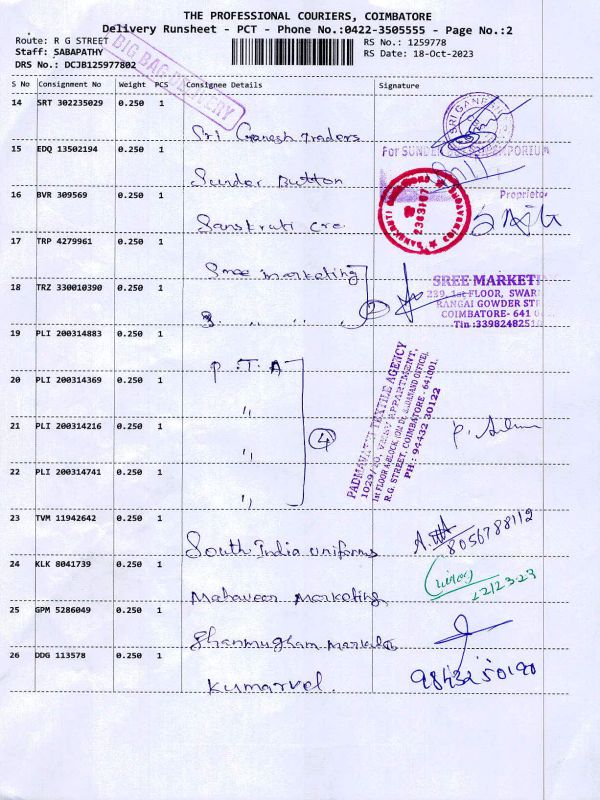 THE PROFESSIONAL COURIERS, COIMBATORE
Delivery Runsheet - PCT - Phone No.:0422-3505555 - Page No.:2
Route: R G STREET
Staff: SABAPATHY
DRS No.: DCJB125977802
RS No.: 1259778
RS Date: 18-Oct-2023
BIG BAG DELIVERY
S No Consignment No Weight PCS Consignee Details Signature
14 SRT 302235029 0.250 1
Sri Ganesh Traders
SRI GANESH
15 EDQ 13502194 0.250 1
Sundar Button
For SUNDER
Proprietor
16 BVR 309569 0.250 1
Sanskruti cre
17 TRP 4279961 0.250 1
Sree marketing
18 TRZ 330010390 0.250 1
2
SREE MARKETI
229, 1st FLOOR, SWAR
RANGAI GOWDER STR
COIMBATORE- 641 0
Tin :3398248251
19 PLI 200314883 0.250 1
P.T.A
20 PLI 200314369 0.250 1
"
21 PLI 200314216 0.250 1
"
22 PLI 200314741 0.250 1
"
4
PADMAVATHI TEXTILE AGENCY
R.G. STREET, COIMBATORE - 641001.
PH : 94432 30122
23 TVM 11942642 0.250 1
South India uniforms
8056788112
24 KLK 8041739 0.250 1
Mahaveer Marketing
25 GPM 5286049 0.250 1
Shanmugham marketing
26 DDG 113578 0.250 1
Kumarvel.
9843250190